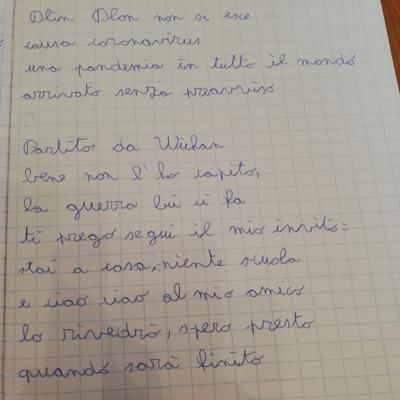 Dlin Dlon non si esce
causa coronavirus
una pandemia in tutto il mondo
arrivato senza preavviso
Partito da Wuhan
bene non l'ho capito,
la guerra lui ci fa
ti prego segui il mio invito:
stai a casa, niente scuola
e ciao ciao al mio amico
lo rivedrò, spero presto
quando sarà finito